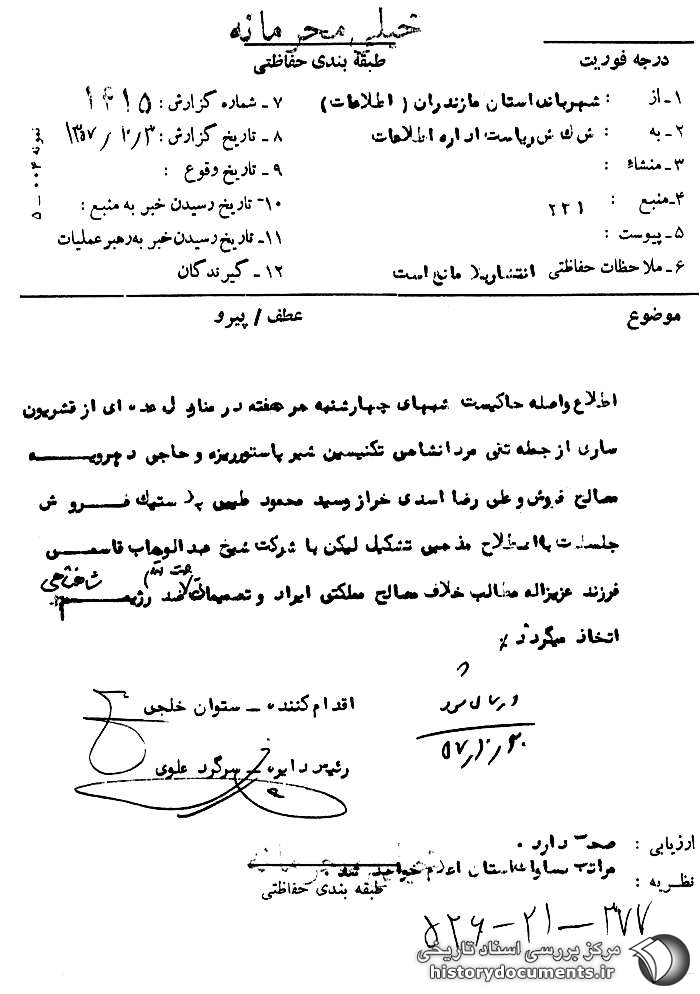 خیلی محرمانه
درجه فوریت
طبقه بندی حفاظتی
۱ـ از : شهربانی استان مازندران ( اطلاعات )
۷ـ شماره گزارش :
۲ـ به : ریاست اداره اطلاعات
۸ـ تاریخ گزارش : ۱۳۵۷/۱۰/۳
۳ـ منشاء :
۹ـ تاریخ وقوع :
۴ـ منبع : ۲۲۱
۱۰ـ تاریخ رسیدن خبر به منبع :
۵ـ پیوست :
۱۱ـ تاریخ رسیدن خبر به رهبر عملیات
۶ـ ملاحظات حفاظتی انتشار بلا مانع است
۱۲ـ گیرندگان
نمونه ۰۰۴ ـ ۵
موضوع
عطف / پیرو
اطلاع واصله حاکیست شبهای چهارشنبه هر هفته در منازل عده ای از قشریون
ساری از جمله تقی مردانشاهی تکنیسین شیر پاستوریزه و حاجی
مصالح فروش و علی رضا اسدی خراز و سید محمود طیبی پلاستیک فروش
جلسات باصطلاح مذهبی تشکیل لیکن با شرکت شیخ عبدالوهاب قاسمی
فرزند عزیزاله مطالب خلاف مصالح مملکتی ایراد و تصمیماتی ضد رژیم شاهنشاهی
اتخاذ میگردد ٪
اقدام کننده ـ ستوان خلجی
رئیس دایره ـ سرگرد علوی
ارزیابی : صحت دارد .
نظریه : مراتب بساواک استان اعلام خواهد شد .
طبقه بندی حفاظتی
۵۲۶-۲۱-۳۷۷
مرکز بررسی اسناد تاریخی
historydocuments.ir